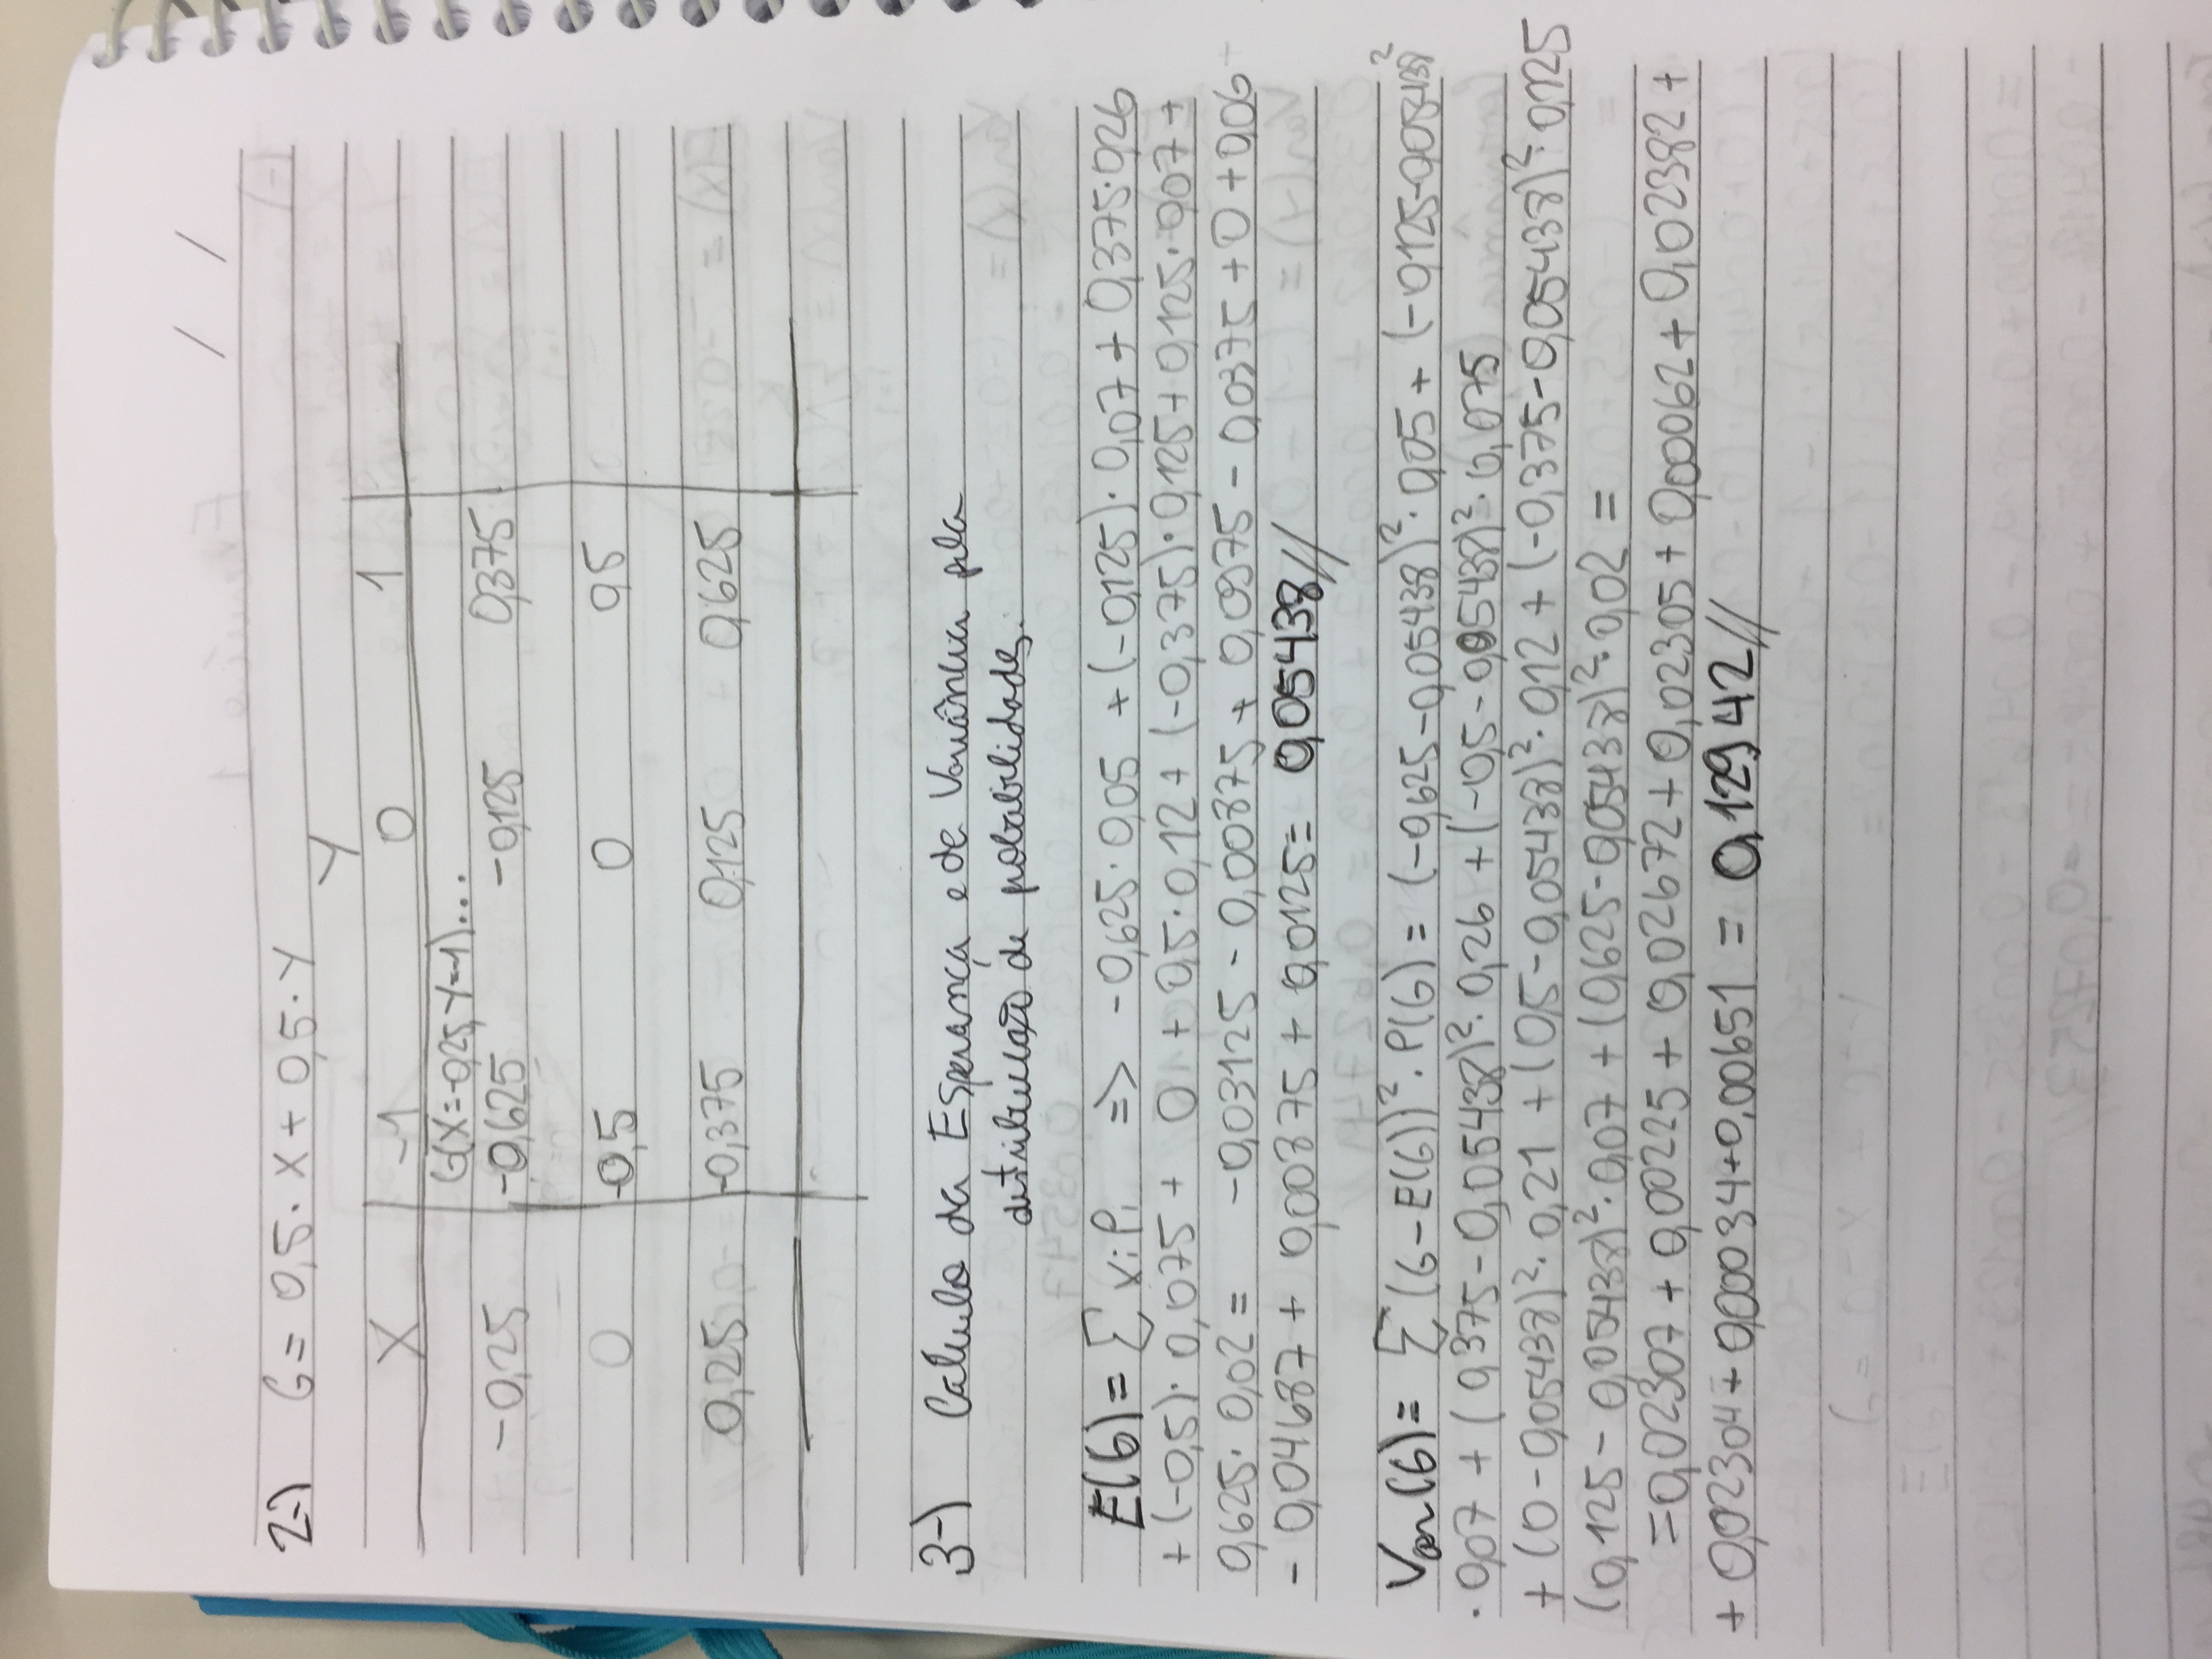 / /
2-) G = 0,5 · X + 0,5 · Y
Y
X -1 0 1
G(X=-0,25, Y=-1)...
-0,25 -0,625 -0,125 0,375
0 -0,5 0 0,5
0,25 -0,375 0,125 0,625
3-) Calculo da Esperança e da Variância pela
distribuição de probabilidades.
E(G) = Σ xi Pi => -0,625 · 0,05 + (-0,125) · 0,07 + 0,375 · 0,26
+ (-0,5) · 0,075 + 0 + 0,5 · 0,12 + (-0,375) · 0,125 + 0,125 · 0,07 +
0,625 · 0,02 = -0,03125 - 0,00875 + 0,0975 - 0,0375 + 0 + 0,06
- 0,04687 + 0,00875 + 0,0125 = 0,05438//
Var(G) = Σ (G - E(G))² · P(G) = (-0,625 - 0,05438)² · 0,05 + (-0,125 - 0,05438)²
· 0,07 + (0,375 - 0,05438)² · 0,26 + (-0,5 - 0,05438)² · 0,075
+ (0 - 0,05438)² · 0,21 + (0,5 - 0,05438)² · 0,12 + (-0,375 - 0,05438)² · 0,125
(0,125 - 0,05438)² · 0,07 + (0,625 - 0,05438)² · 0,02 =
= 0,02307 + 0,00225 + 0,02672 + 0,02305 + 0,00062 + 0,02382 +
+ 0,02304 + 0,00034 + 0,00651 = 0,12942//